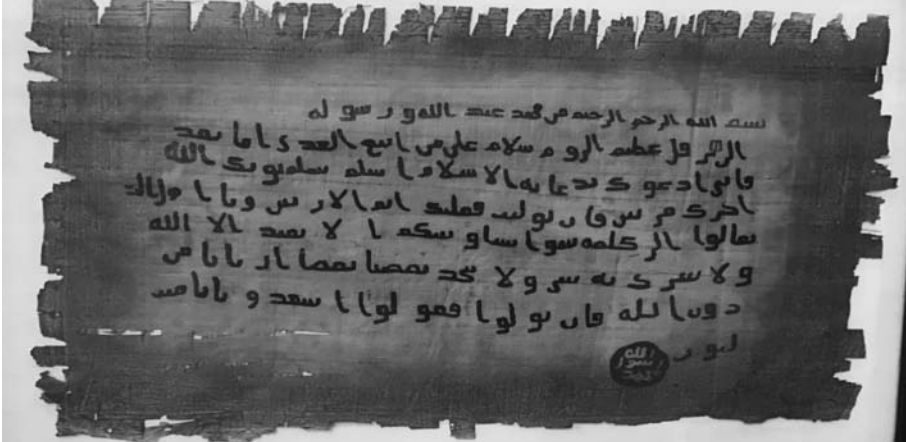 بسم الله الرحمن الرحيم من محمد عبد الله و رسو له
الى هرقل عظيم الرو م سلام على من اتبع الهدى اما بعد
فانى ادعو ك بدعا ية الا سلام ا سلم تسلم يؤتك الله
اجرك مر تين فا ن توليت فعليك اثم الار يسين ويا ا
تعالوا الى كلمة سوا بيننا و بينكم ا لا نعبد الا الله
و لا نشر ك به شى و لا يتخذ بعضنا بعضا ار بابا من
دون ا لله فان تو لو ا فقو لو ا ا شهد و ا بانا مسـ
لمو ن
الله
رسول
محمد